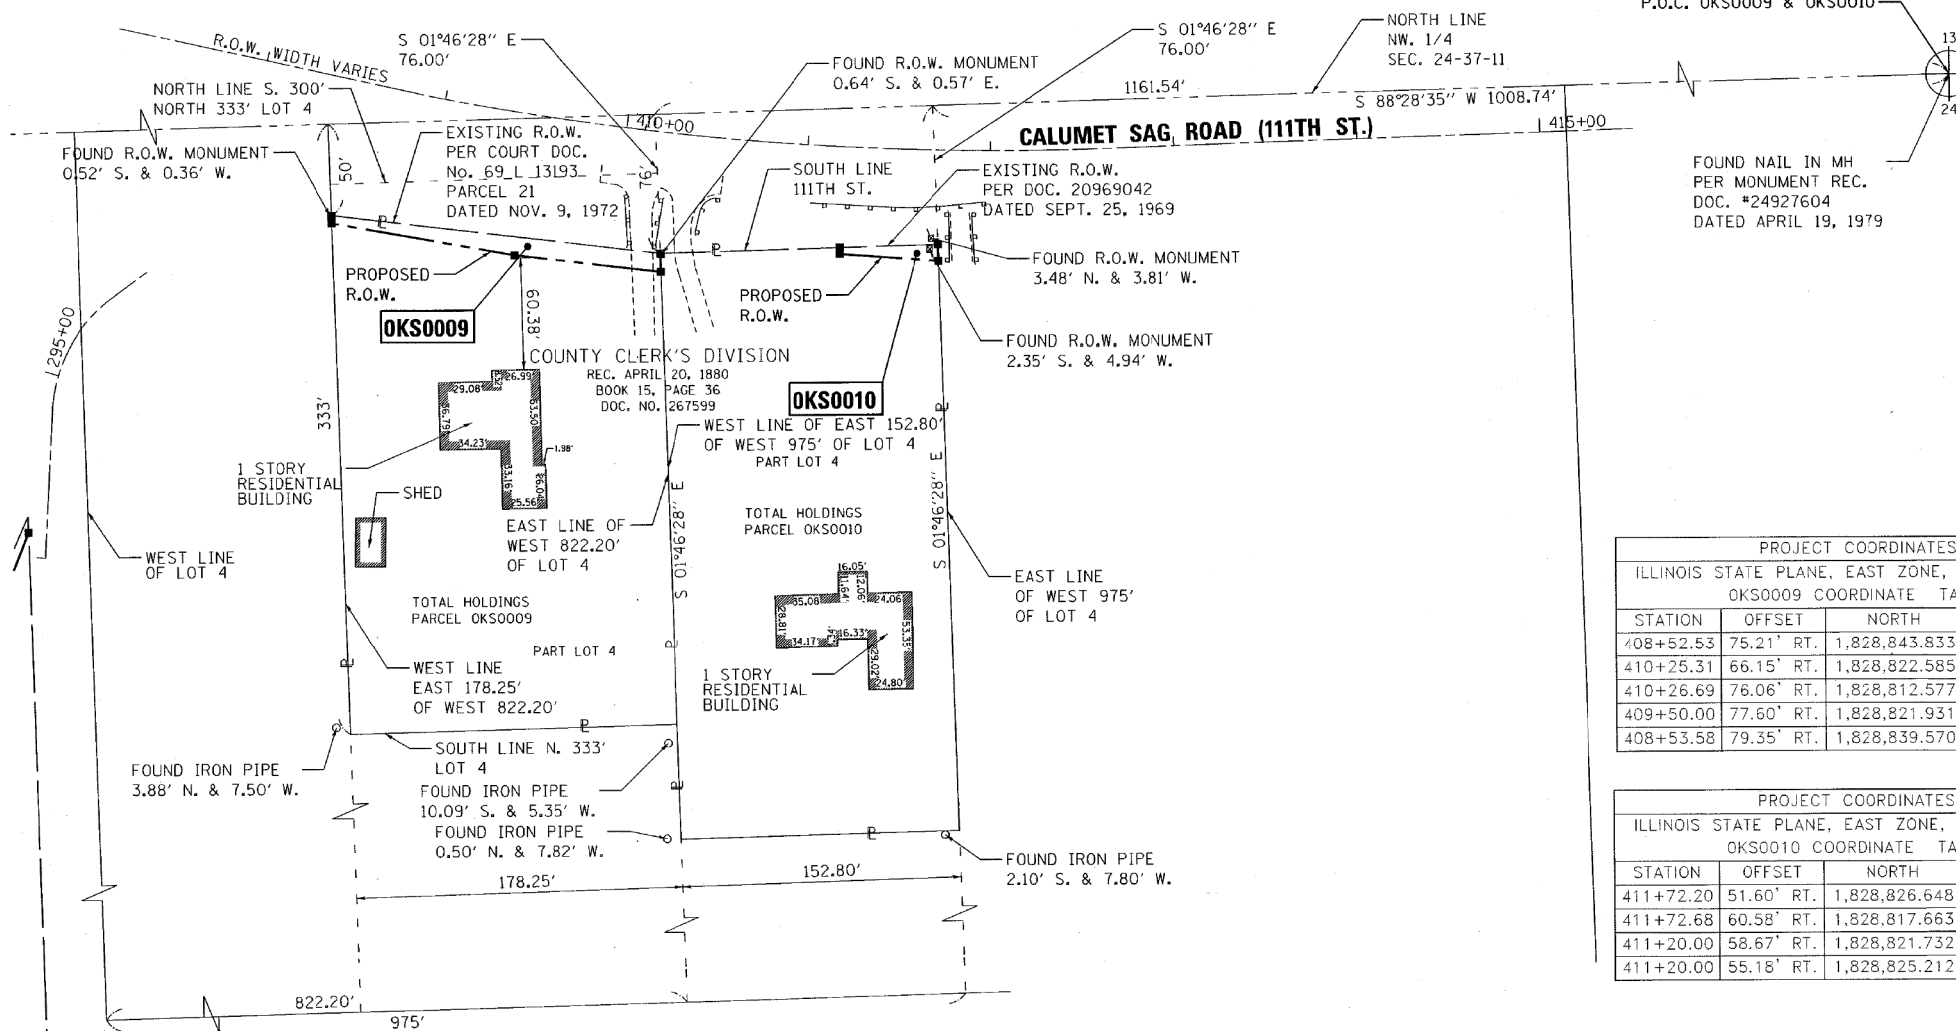 P.O.C. OKS0009 & OKS0010
13
24
R.O.W. WIDTH VARIES
S 01°46'28" E
76.00'
NORTH LINE S. 300'
NORTH 333' LOT 4
FOUND R.O.W. MONUMENT
0.52' S. & 0.36' W.
50'
EXISTING R.O.W.
PER COURT DOC.
No. 69 L 13193
PARCEL 21
DATED NOV. 9, 1972
410+00
76'
FOUND R.O.W. MONUMENT
0.64' S. & 0.57' E.
S 01°46'28" E
76.00'
1161.54'
NORTH LINE
NW. 1/4
SEC. 24-37-11
S 88°28'35" W 1008.74'
CALUMET SAG ROAD (111TH ST.)
415+00
SOUTH LINE
111TH ST.
EXISTING R.O.W.
PER DOC. 20969042
DATED SEPT. 25, 1969
FOUND NAIL IN MH
PER MONUMENT REC.
DOC. #24927604
DATED APRIL 19, 1979
FOUND R.O.W. MONUMENT
3.48' N. & 3.81' W.
FOUND R.O.W. MONUMENT
2.35' S. & 4.94' W.
PROPOSED
R.O.W.
OKS0009
60.38'
PROPOSED
R.O.W.
OKS0010
295+00
333'
COUNTY CLERK'S DIVISION
REC. APRIL 20, 1880
BOOK 15, PAGE 36
DOC. NO. 267599
29.08'
26.99'
36.79'
53.50'
34.23'
1.98'
33.16'
26.04'
25.56'
1 STORY
RESIDENTIAL
BUILDING
SHED
WEST LINE OF EAST 152.80'
OF WEST 975' OF LOT 4
PART LOT 4
EAST LINE OF
WEST 822.20'
OF LOT 4
S 01°46'28" E
TOTAL HOLDINGS
PARCEL OKS0010
S 01°46'28" E
WEST LINE
OF LOT 4
TOTAL HOLDINGS
PARCEL OKS0009
PART LOT 4
WEST LINE
EAST 178.25'
OF WEST 822.20'
16.05'
35.08'
11.64'
12.06'
24.06'
28.81'
53.35'
34.17'
16.33'
29.02'
24.80'
1 STORY
RESIDENTIAL
BUILDING
EAST LINE
OF WEST 975'
OF LOT 4
SOUTH LINE N. 333'
LOT 4
FOUND IRON PIPE
3.88' N. & 7.50' W.
FOUND IRON PIPE
10.09' S. & 5.35' W.
FOUND IRON PIPE
0.50' N. & 7.82' W.
FOUND IRON PIPE
2.10' S. & 7.80' W.
178.25'
152.80'
822.20'
975'
PROJECT COORDINATES
ILLINOIS STATE PLANE, EAST ZONE,
OKS0009 COORDINATE TA
STATION OFFSET NORTH
408+52.53 75.21' RT. 1,828,843.833
410+25.31 66.15' RT. 1,828,822.585
410+26.69 76.06' RT. 1,828,812.577
409+50.00 77.60' RT. 1,828,821.931
408+53.58 79.35' RT. 1,828,839.570
PROJECT COORDINATES
ILLINOIS STATE PLANE, EAST ZONE,
OKS0010 COORDINATE TA
STATION OFFSET NORTH
411+72.20 51.60' RT. 1,828,826.648
411+72.68 60.58' RT. 1,828,817.663
411+20.00 58.67' RT. 1,828,821.732
411+20.00 55.18' RT. 1,828,825.212